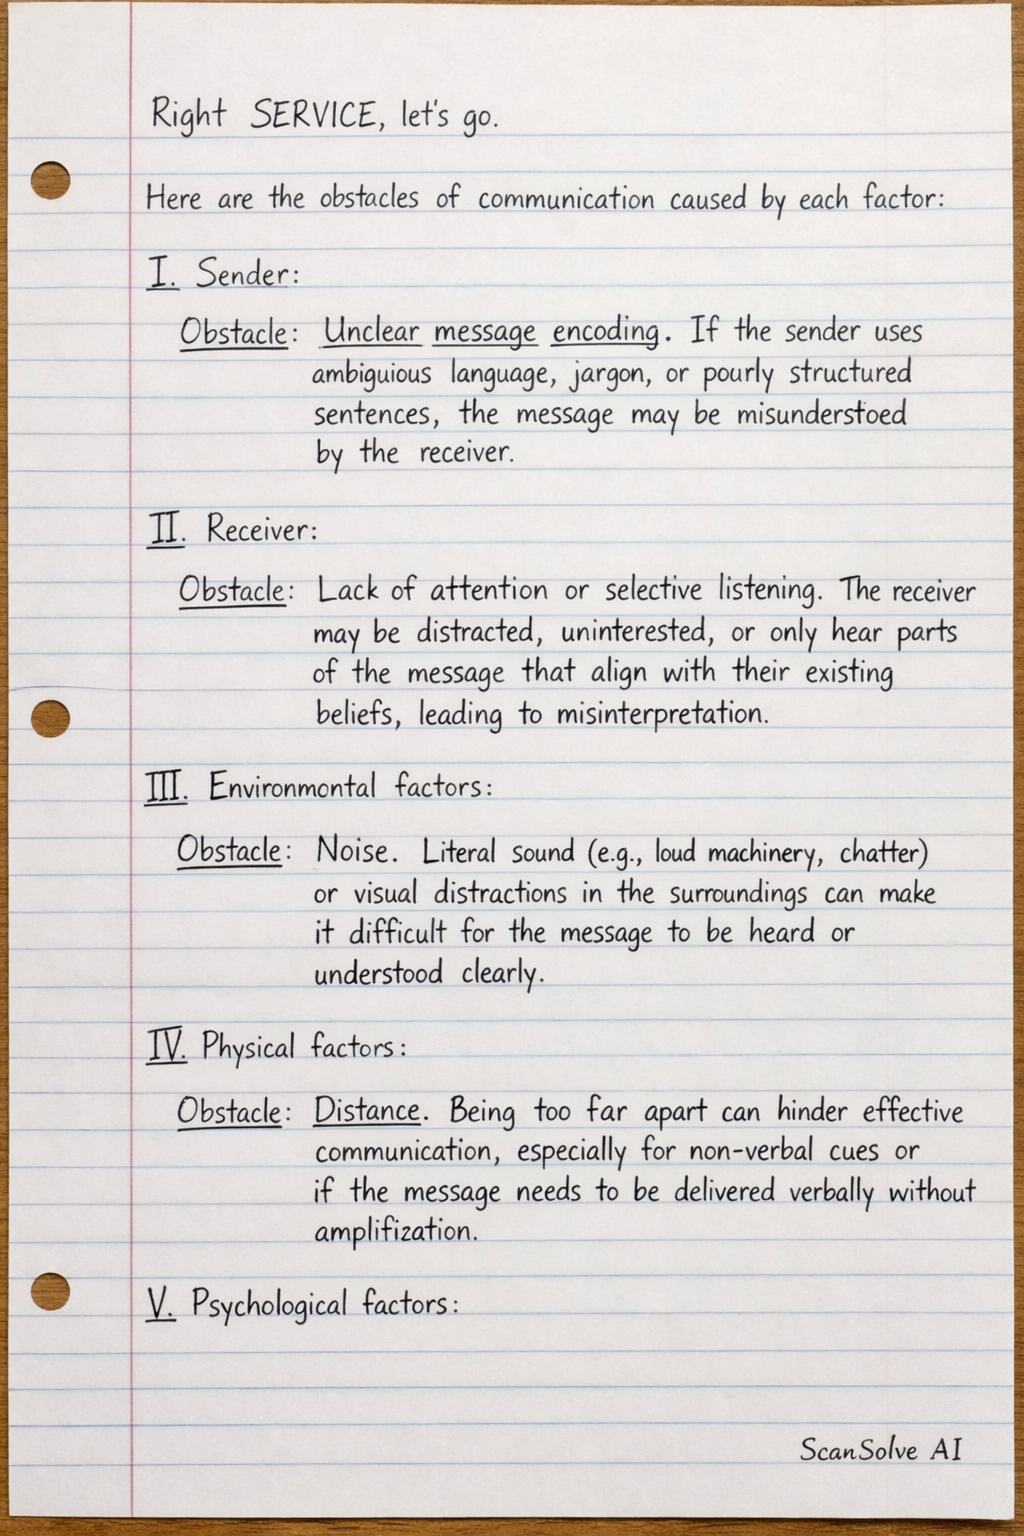 Right SERVICE, let's go.
Here are the obstacles of communication caused by each factor:
I. Sender:
Obstacle: Unclear message encoding. If the sender uses
ambiguious language, jargon, or pourly structured
sentences, the message may be misunderstoed
by the receiver.
II. Receiver:
Obstacle: Lack of attention or selective listening. The receiver
may be distracted, uninterested, or only hear parts
of the message that align with their existing
beliefs, leading to misinterpretation.
III. Environmontal factors:
Obstacle: Noise. Literal sound (e.g., loud machinery, chatter)
or visual distractions in the surroundings can make
it difficult for the message to be heard or
understood clearly.
IV. Physical factors:
Obstacle: Distance. Being too far apart can hinder effective
communication, especially for non-verbal cues or
if the message needs to be delivered verbally without
amplifization.
V. Psychological factors:
ScanSolve AI